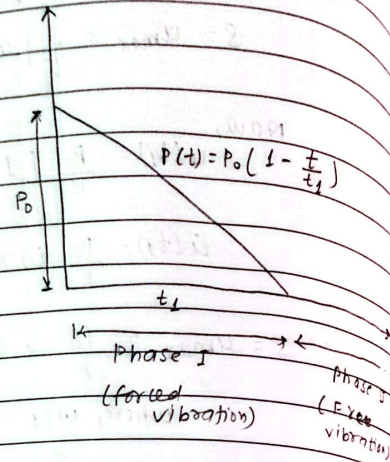 P(t) = P₀ ( 1 - t/t₁ )
P₀
t₁
Phase I
(forced
vibration)
Phase
(Free
vibration